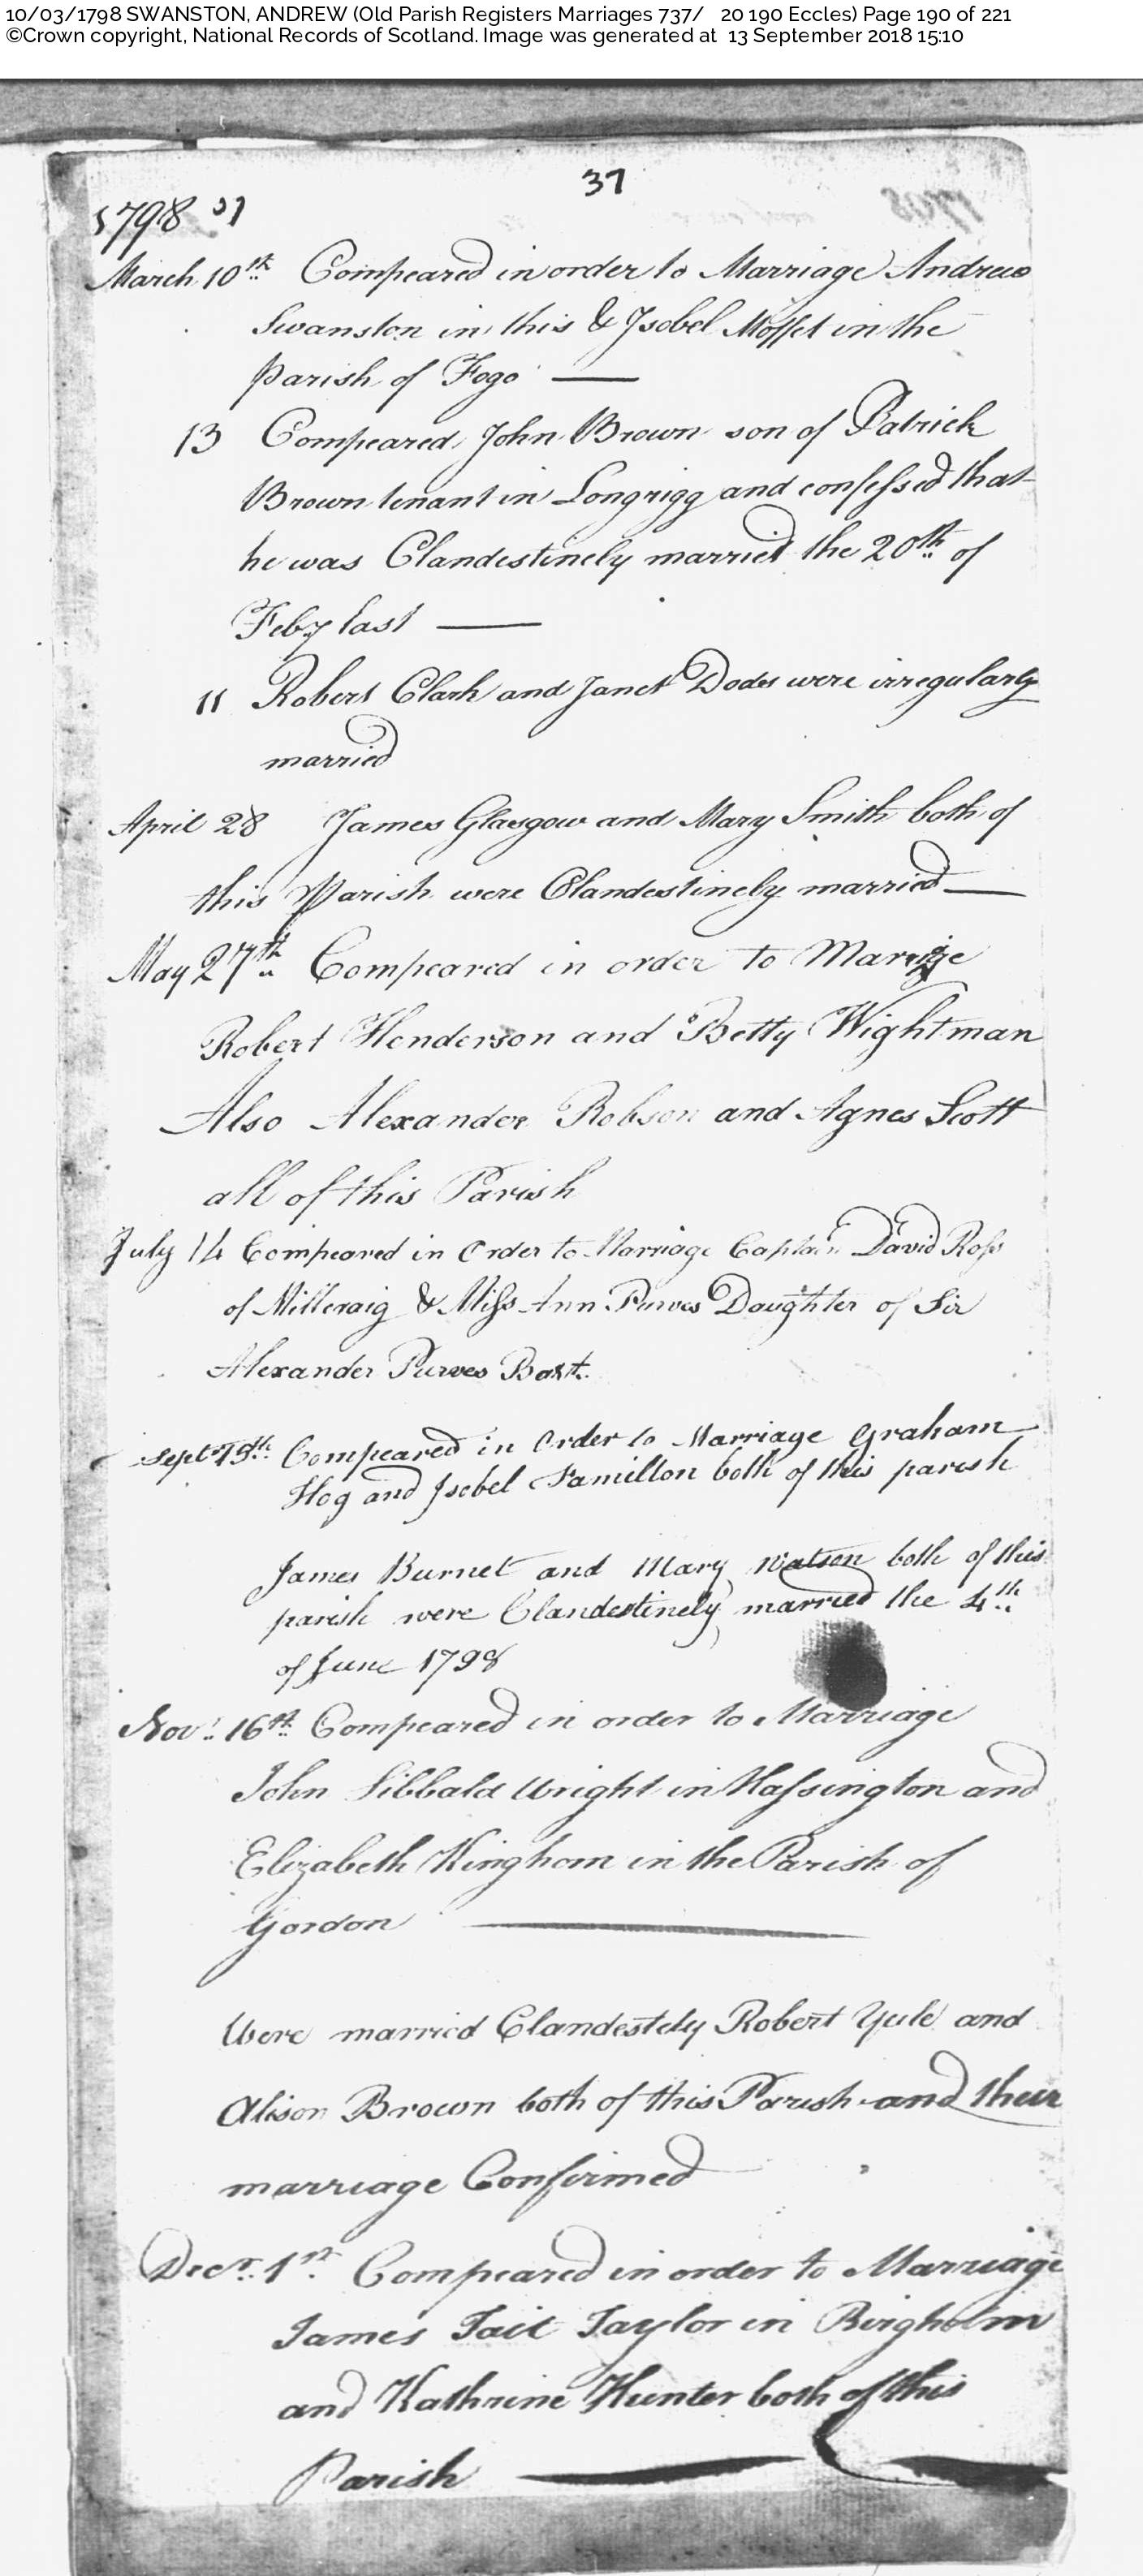 10/03/1798 SWANSTON, ANDREW (Old Parish Registers Marriages 737/ 20 190 Eccles) Page 190 of 221
©Crown copyright, National Records of Scotland. Image was generated at 13 September 2018 15:10
37
1798
March 10th Compeared in order to Marriage Andrew
Swanston in this & Isobel Moffet in the
Parish of Fogo
13 Compeared John Brown son of Patrick
Brown tenant in Longrigg and confessed that
he was Clandestinely married the 20th of
Feby last
11 Robert Clark and Janet Dods were irregularly
married
April 28 James Glasgow and Mary Smith both of
this Parish were Clandestinely married
May 27th Compeared in order to
Robert Henderson and Betty Wightman
Also Alexander Robson and Agnes Scott
all of this Parish
July 14 Compeared in Order to Marriage Captain David Ross
of Millcraig & Miss Ann Purves Daughter of Sir
Alexander Purves Bart.
Sept 15th Compeared in Order to Marriage Graham
Hog and Isobel both of this parish
James Burnet and Mary Watson both of this
parish were Clandestinely married the 4th
of June 1798
Novr 16th Compeared in order to Marriage
John Sibbald Wright in Hassington and
Elizabeth Kinghorn in the Parish of
Gordon
Were married Clandestely Robert Yule and
Alison Brown both of this Parish and their
marriage Confirmed
Decr. 1st Compeared in order to Marriage
James Tait Taylor in Birgham
and Kathrine Hunter both of this
Parish